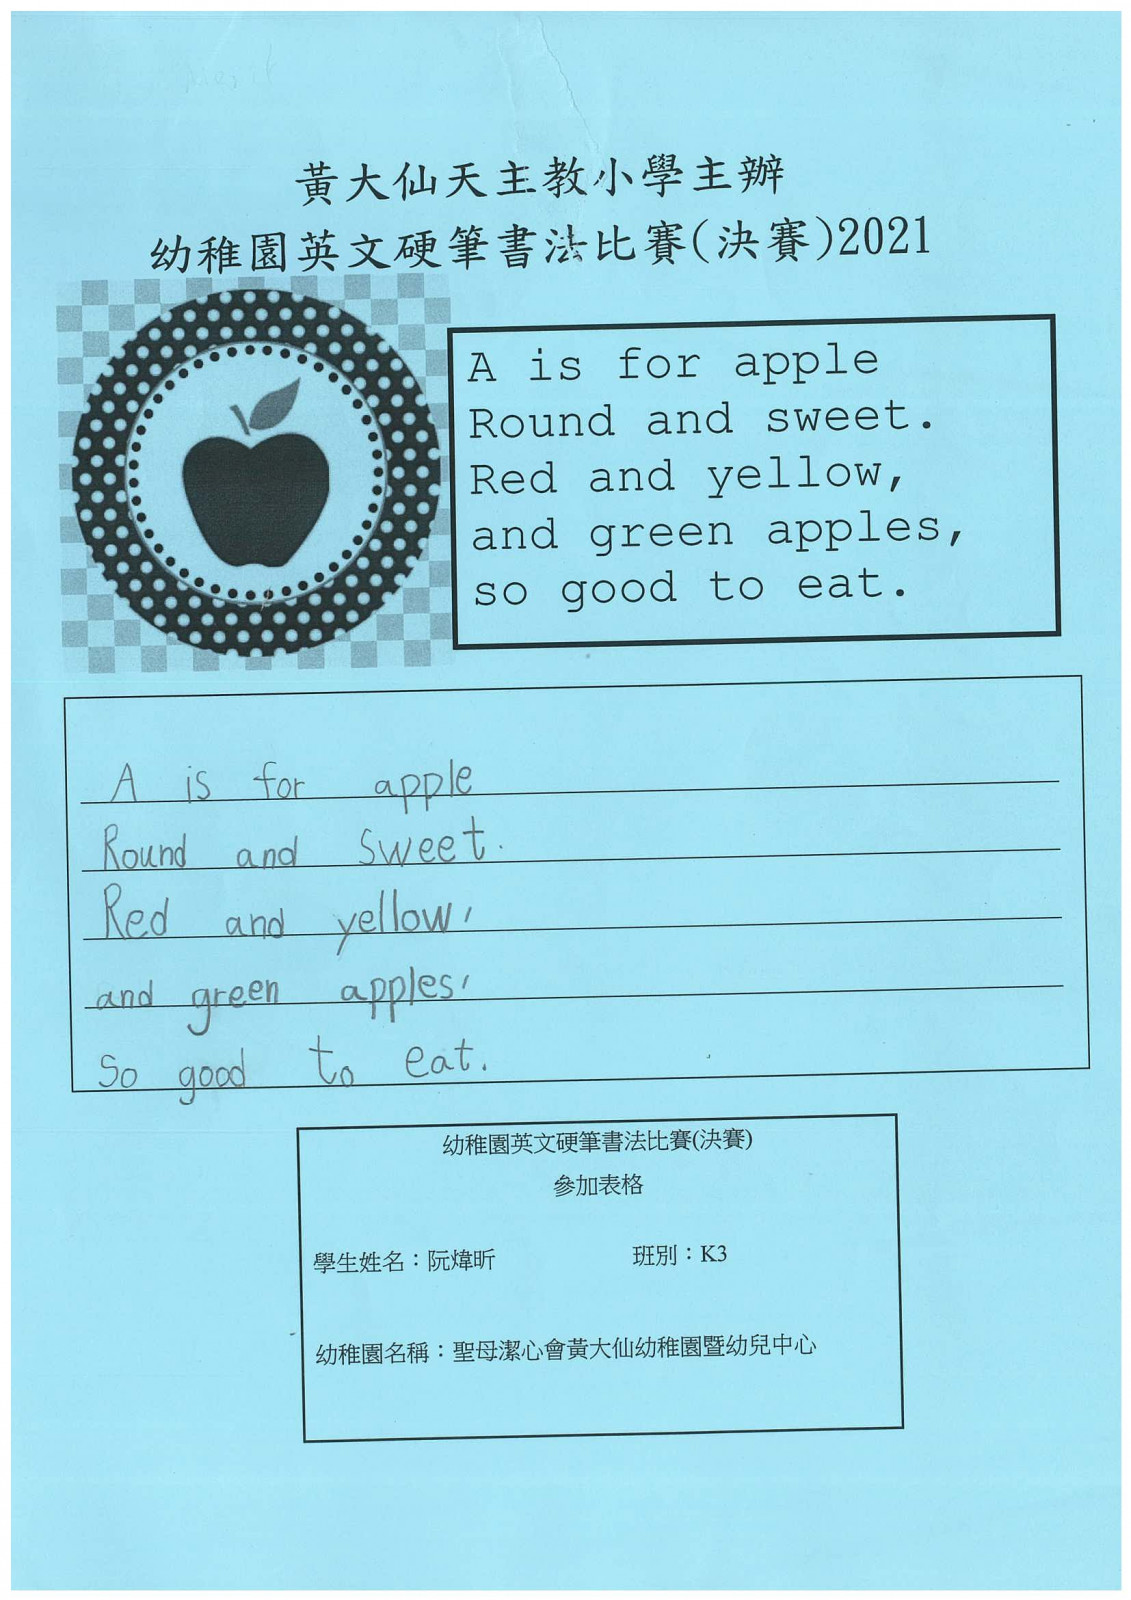 黃大仙天主教小學主辦
幼稚園英文硬筆書法比賽(決賽)2021
A is for apple
Round and sweet.
Red and yellow,
and green apples,
so good to eat.
A is for apple
Round and sweet.
Red and yellow,
and green apples,
So good to eat.
幼稚園英文硬筆書法比賽(決賽)
參加表格
學生姓名：阮煒昕 班別：K3
幼稚園名稱：聖母潔心會黃大仙幼稚園暨幼兒中心